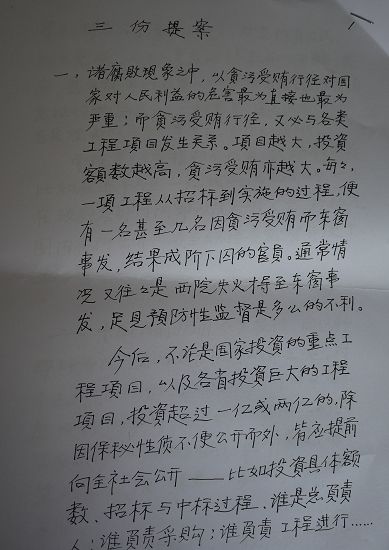 三份提案
一，诸腐敗現象之中，以貪污受贿行径对国
家对人民利益的危害最为直接也最为
严重；而貪污受贿行径，又必与各类
工程項目发生关系。項目越大，投資
額数越高，貪污受贿亦越大。每々，
一項工程从招标到实施的过程，便
有一名甚至几名因貪污受贿而东窗
事发，结果成阶下囚的官員。通常情
况又往々是西院失火得至东窗事
发，足見预防性监督是多么的不利。
今后，不论是国家投資的重点工
程項目，以及各省投資巨大的工程
項目，投資超过一亿或两亿的，除
因保秘性质不便公开而外，皆应提前
向全社会公开——比如投資具体額
数、招标与中标过程、谁是总負責
人；谁負責采购；谁負責工程进行……